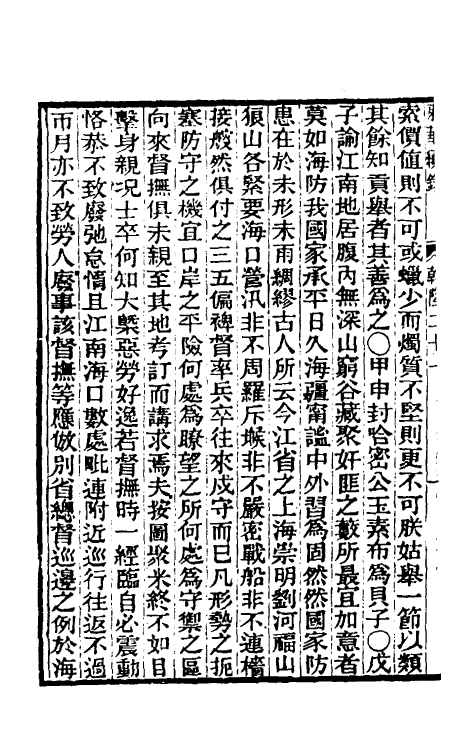 索價値則不可或蠟少而燭質不堅則更不可朕姑舉一節以類
其餘知貢舉者其善為之〇甲申封哈密公玉素布為貝子〇戊
子諭江南地居腹內無深山窮谷藏聚奸匪之藪所最宜加意者
莫如海防我國家承平日久海疆甯謐中外習為固然然國家防
患在於未形未雨綢繆古人所云今江省之上海崇明劉河福山
狼山各緊要海口營汛非不周羅斥堠非不嚴密戰船非不連檣
接艘然俱付之三五偏裨督率兵卒往來戍守而已凡形勢之扼
塞防守之機宜口岸之平險何處為瞭望之所何處為守禦之區
向來督撫俱未親至其地考訂而講求焉夫按圖聚米終不如目
擊身親况士卒何知大槩惡勞好逸若督撫時一經臨自必震動
恪恭不致廢弛怠惰且江南海口數處毗連附近巡行往返不過
帀月亦不致勞人廢事該督撫等應倣別省總督巡邊之例於海